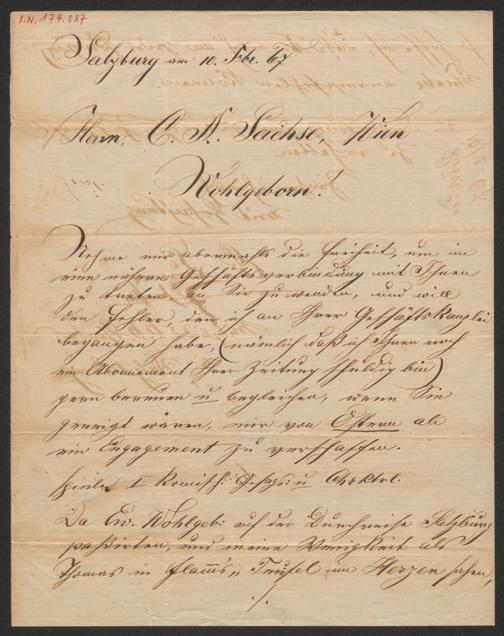 I.N. 174.087
Salzburg am 10. Fbr. 67
Herrn, C. A. Sachse, Wien
Wohlgeborn!
Nehme mir abermahls die Freiheit, um in
eine nähere Geschäftsverbindung mit Ihnen
zu treten an Sie zu wenden, und will
den Fehler, den ich an Ihrer Geschäftskanzlei
begangen habe, (nämlich daß ich Ihnen noch
ein Abonnement Ihrer Zeitung schuldig bin)
gern bereuen u begleichen, wenn Sie
geneigt wären, mir von Ostern ab
ein Engagement zu verschaffen.
spiele I Komische Gesgs: u Chrktrl.
Da Ew. Wohlgeb: auf der Durchreise Salzburg
paßirten, und meine Wenigkeit als
Thomas in Flamms „Teufel im Herzen sahen,
./.